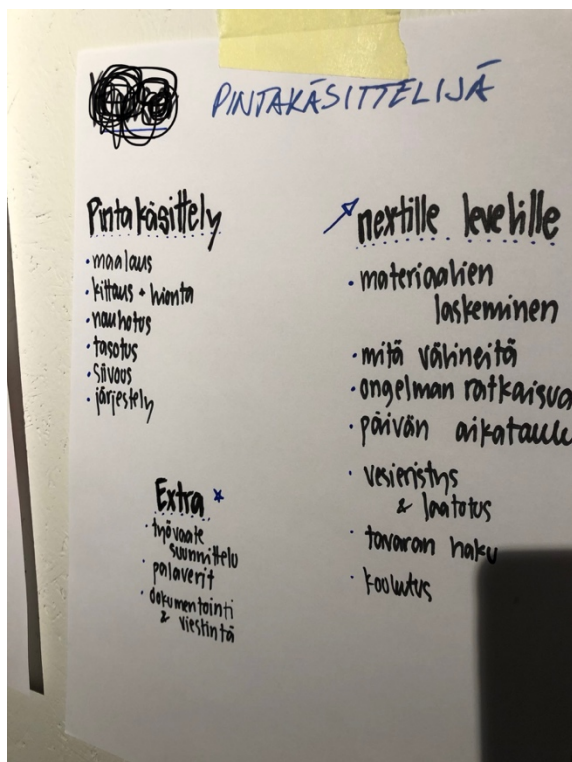 PINTAKÄSITTELIJÄ
Pintakäsittely
• maalaus
• kittaus + hionta
• nauhotus
• tasotus
• siivous
• järjestely
Extra *
• työvaate
suunnittelu
• palaverit
• dokumentointi
& viestintä
nextille levelille
• materiaalien
laskeminen
• mitä välineitä
• ongelman ratkaisua
• päivän aikataulu
• vesieristys
& laatotus
• tavaran haku
• koulutus